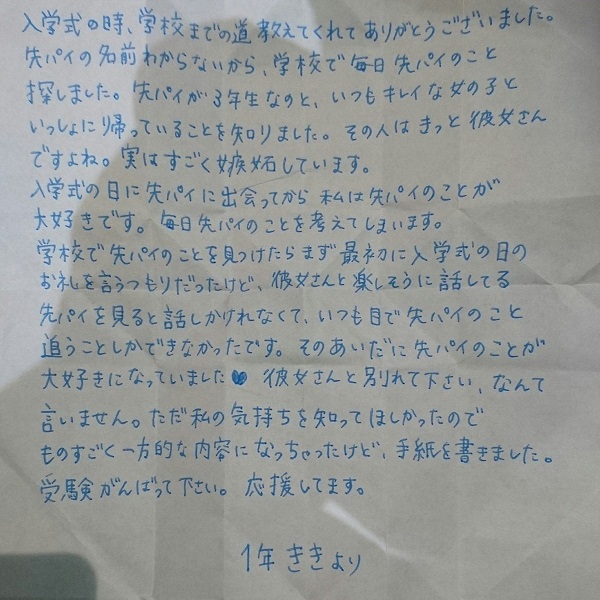 入学式の時、学校までの道教えてくれてありがとうございました。
先パイの名前わからないから、学校で毎日先パイのこと
探しました。先パイが3年生なのと、いつもキレイな女の子と
いっしょに帰っていることを知りました。その人はきっと彼女さん
ですよね。実はすごく嫉妬しています。
入学式の日に先パイに出会ってから私は先パイのことが
大好きです。毎日先パイのことを考えてしまいます。
学校で先パイのことを見つけたらまず最初に入学式の日の
お礼を言うつもりだったけど、彼女さんと楽しそうに話してる
先パイを見ると話しかけれなくて、いつも目で先パイのこと
追うことしかできなかったです。そのあいだに先パイのことが
大好きになっていました♥ 彼女さんと別れて下さい、なんて
言いません。ただ私の気持ちを知ってほしかったので
ものすごく一方的な内容になっちゃったけど、手紙を書きました。
受験がんばって下さい。応援してます。
1年 ききより